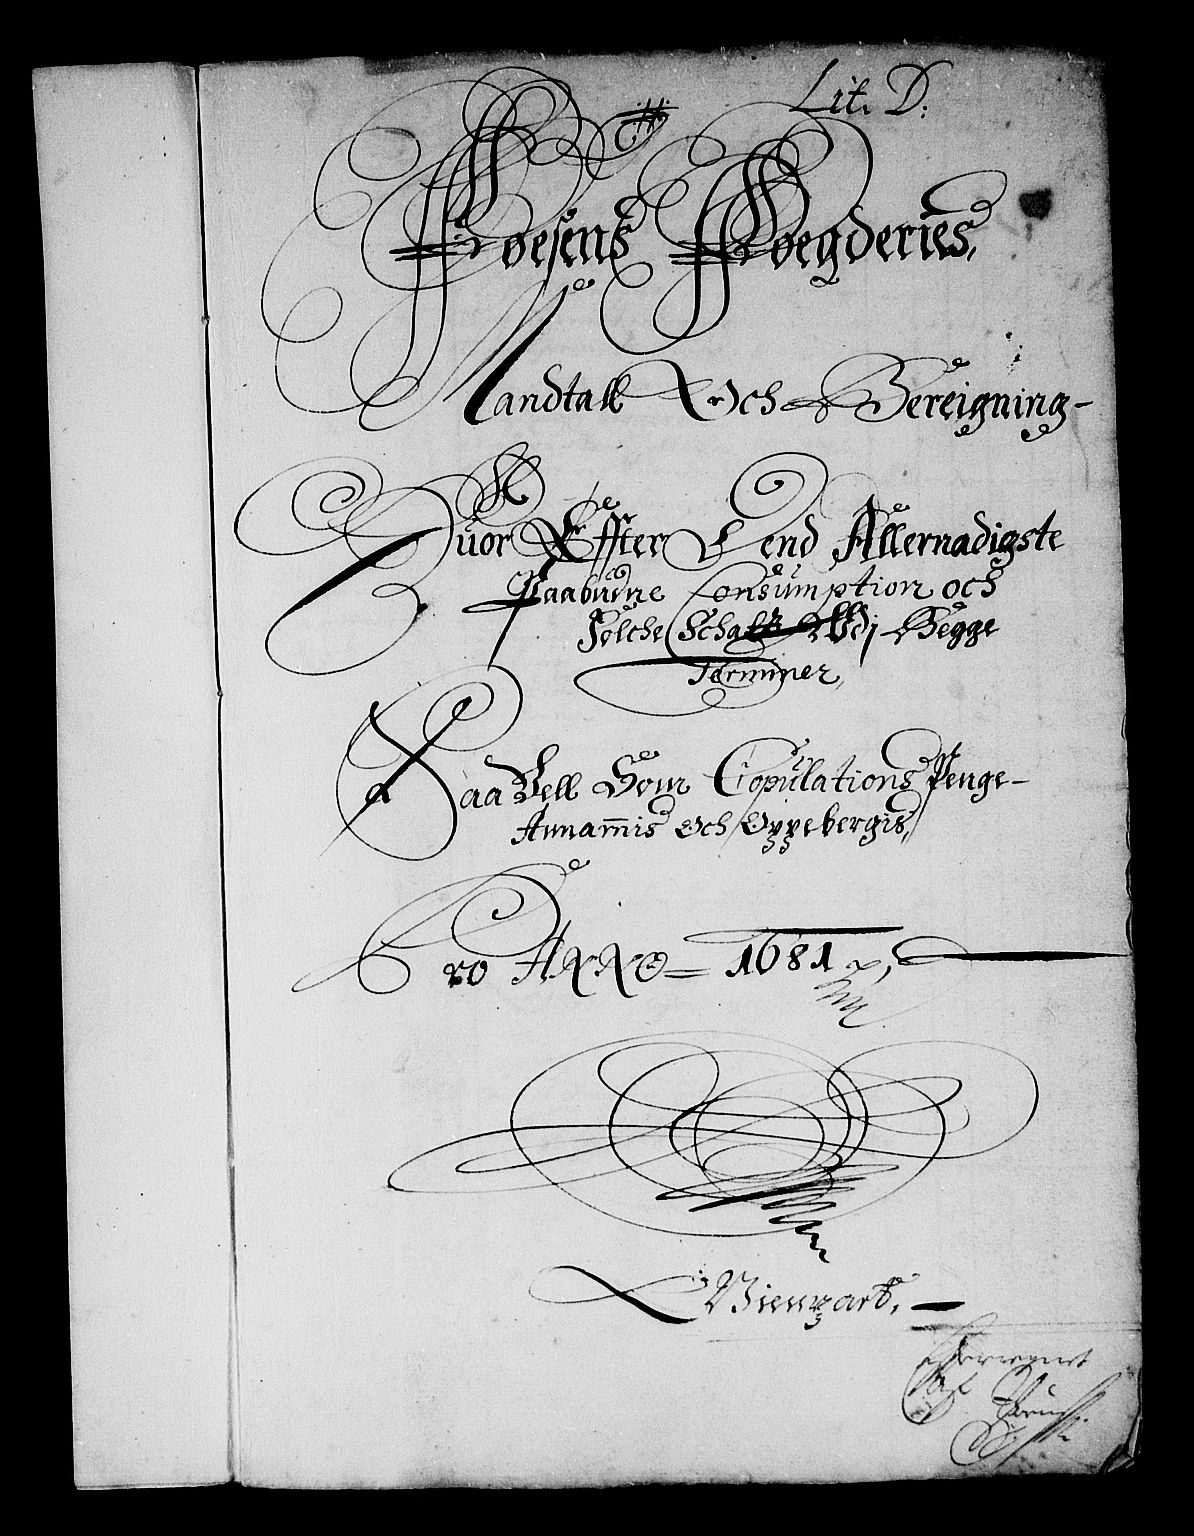 Lit. D.
Foesens Foegderies,
Mandtall Och Bereigning-
Huor Effter Dend Allernadigste
Paabudne Consumption och
Folche Schatt Udj Begge
Terminer,
Saa Vell Som Copulations Penge-
Annammis Och Oppebergis,
Pro ANNO 1681